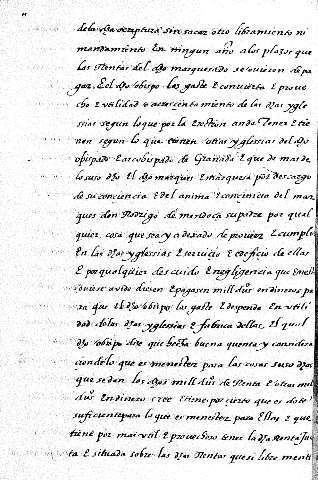 dela dha scriptura sin sacar otro libramiento ni
mandamiento En ningun año alos plazos que
las Rentas del dho marquesado se ovieren de pa
gar E el dho obispo las gaste E convierta E prove
cho E utilidad E acrescentamiento de las dhas ygle
sias segun lo que por la Erection an de Tener E tie
nen segun lo que tienen otras yglesias del dho
obispado E arcobispado de Granada E que de mas de
lo suso dho El dho marques E marquesa por descargo
de su conciencia E del anima E conciencia del mar
ques don Rodrigo de mendoça su padre por qual
quier cosa que sea y a dexado de proveer E cumplir
En las dhas yglesias E servicio E edeficio de ellas
E por qualquier des cuido E negligencia que En ello
oviere avido diesen E pagasen mill dus En dineros pa
ra que El dho obispo los gaste E despenda En utili
dad de las dhas yglesias E fabrica dellas El qual
dho obispo dize que hecha buena quenta y considera
cion de lo que es menester para las cosas suso dhas
que se dan los dhos mill dus de Renta E otros mill
dus En dinero cree E tiene por cierto que es dote
suficiente para lo que es menester para Ello E que
tiene por mas util E provechoso tener la dha Renta Jun
ta E situada sobre las dhas Rentas que si libre mente